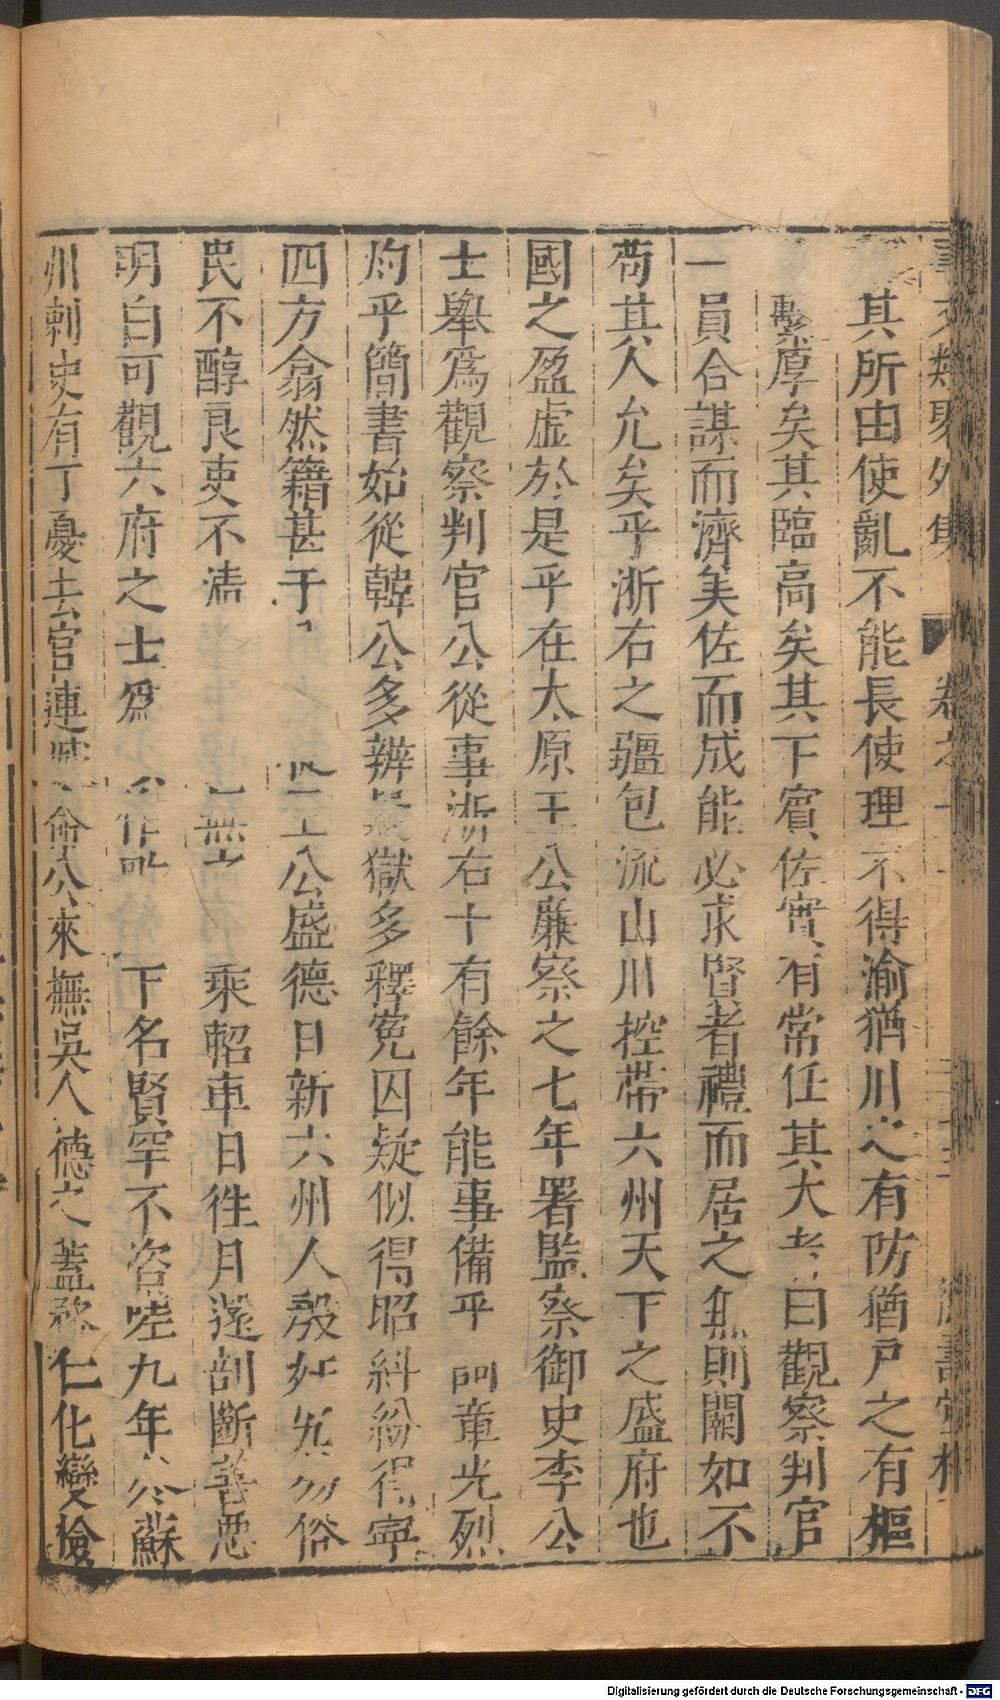 事文類聚外集 卷之十
其所由使亂不能長使理不得渝猶川之有防猶戸之有樞
繫厚矣其臨高矣其下賔佐實有常任其大者曰觀察判官
一員合謀而濟美佐而成能必求賢者禮而居之無則闕如不
苟其人允矣乎浙右之疆包流山川控帶六州天下之盛府也
國之盈虛於是乎在太原王公廉察之七年署監察御史李公
士舉爲觀察判官公從事浙右十有餘年能事備乎 章光烈
灼乎簡書始從韓公多辨 獄多釋寃囚疑似得昭糾紛得寧
四方翕然籍甚于 公盛德日新六州人殷 俗
民不醇良吏不清 無 乘軺車日徃月還剖斷善惡
明白可觀六府之士爲 作 下名賢罕不咨嗟九年 蘇
州刺史有丁憂去官連 命公來撫吳人德之蓋 仁化變檢
Digitalisierung gefördert durch die Deutsche Forschungsgemeinschaft - DFG